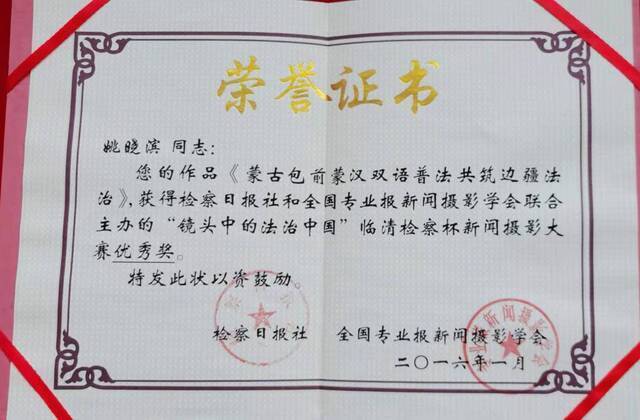 荣誉证书
姚晓滨 同志：
您的作品《蒙古包前蒙汉双语普法共筑边疆法
治》，获得检察日报社和全国专业报新闻摄影学会联合
主办的“镜头中的法治中国”临清检察杯新闻摄影大
赛优秀奖。
特发此状以资鼓励。
检察日报社 全国专业报新闻摄影学会
二〇一六年一月